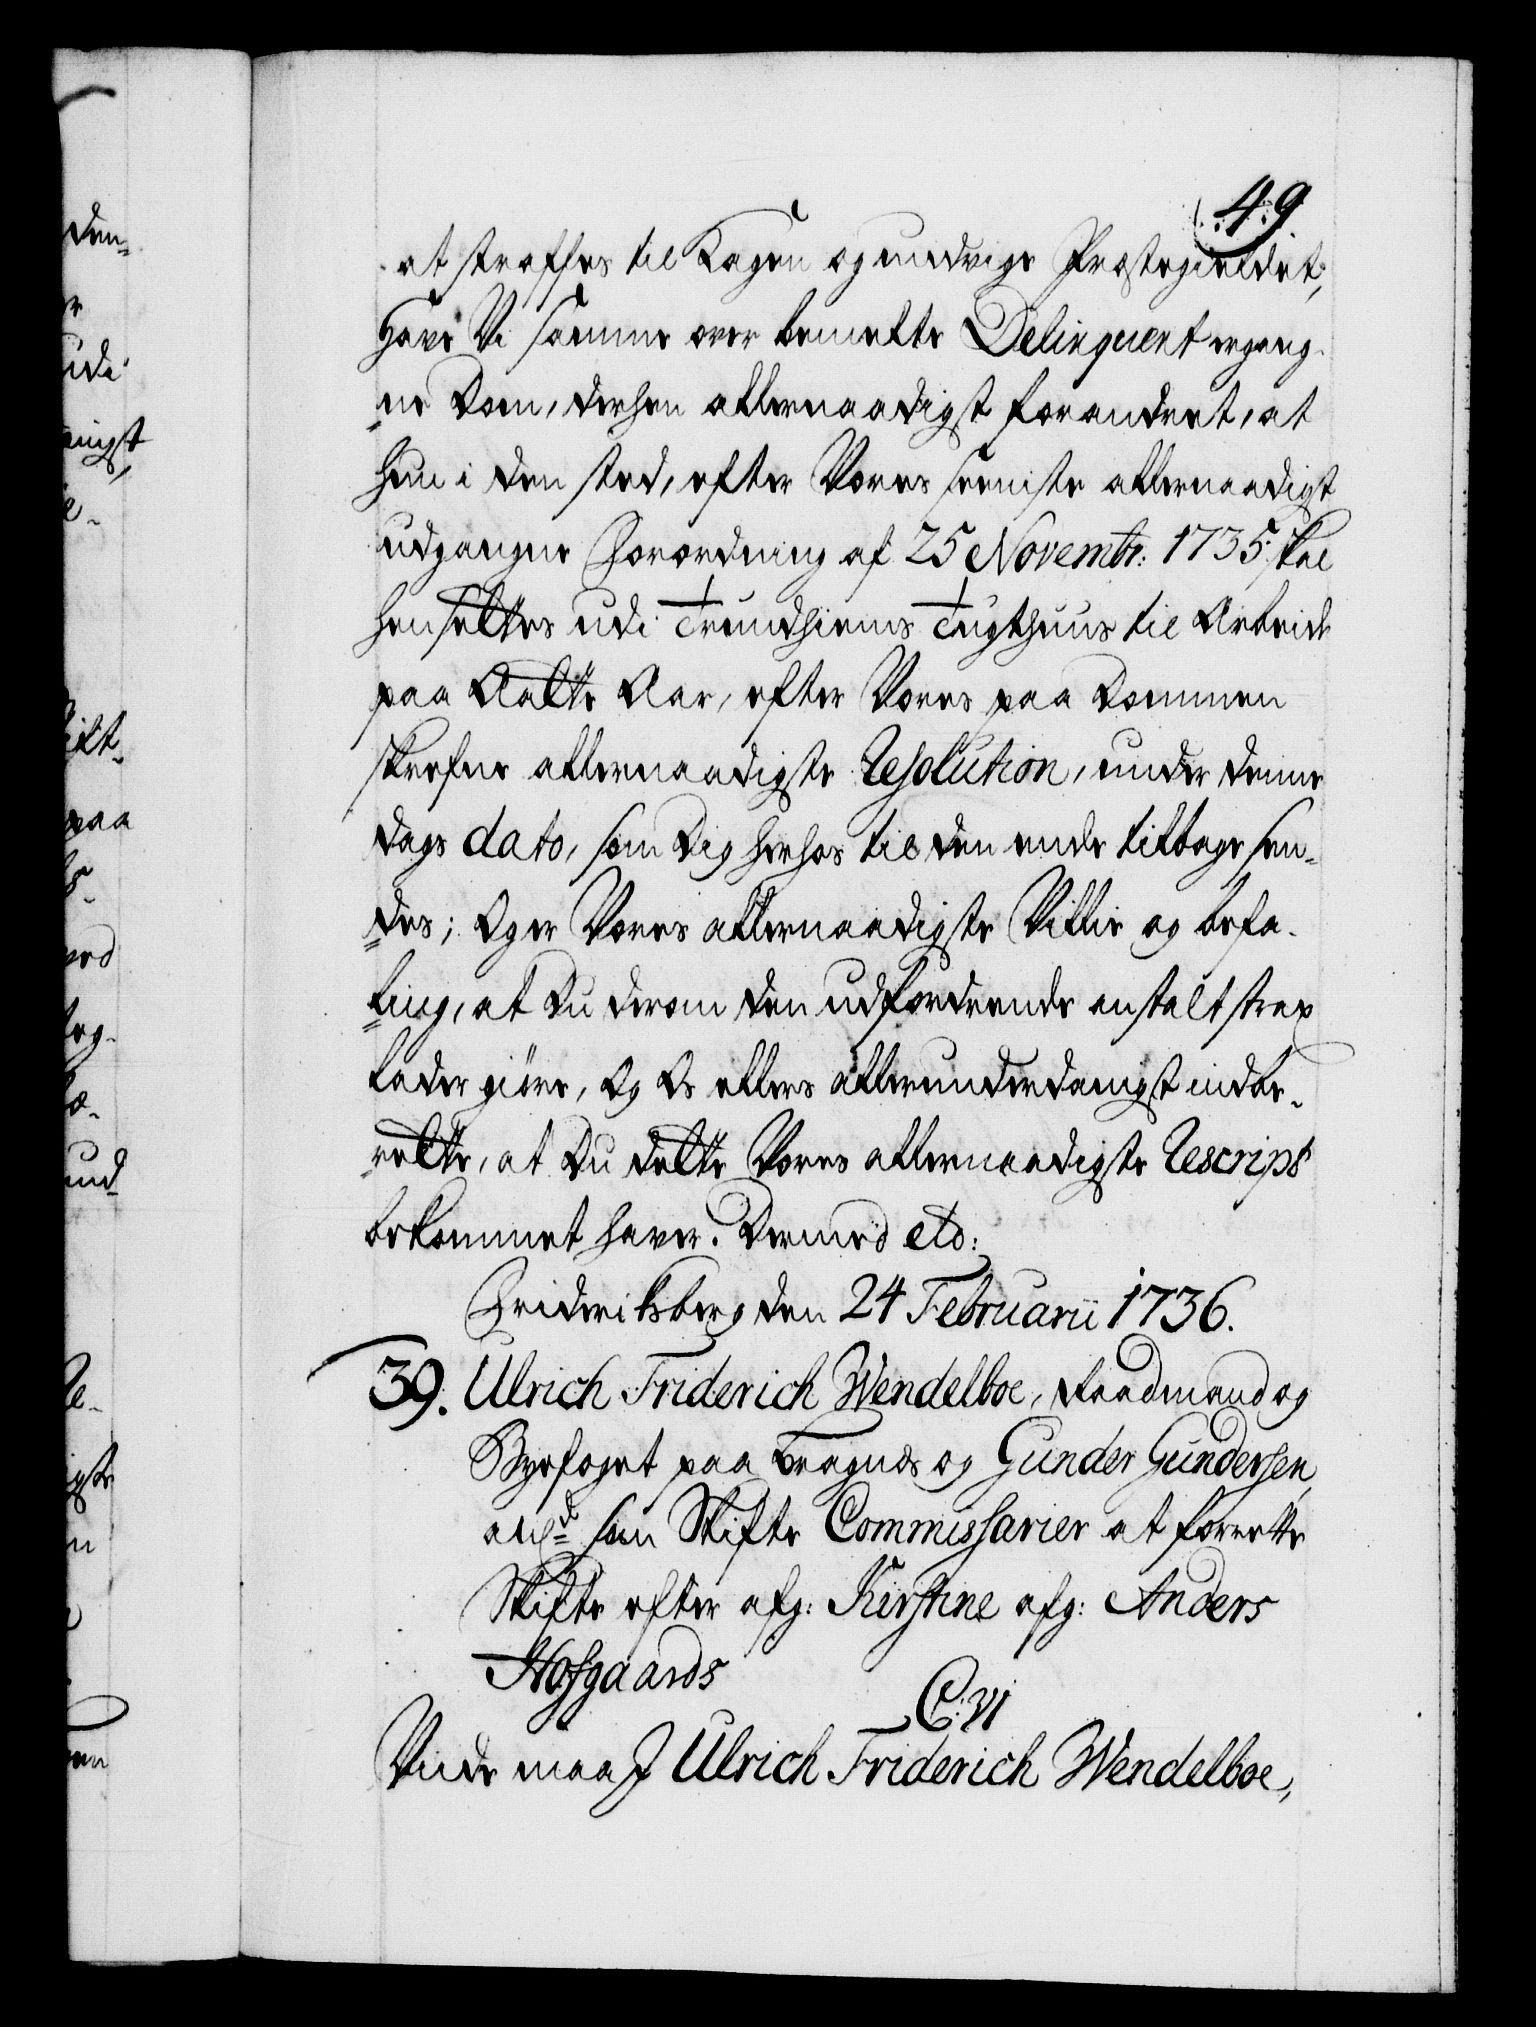 49
at straffes til Kagen og undvige Præstegieldet;
Have Vi samme over bemelte Delinquent ergang-
ne Dom, derhen allernaadigst forandret, at
hun i den sted, efter Vores seeniste allernaadigst
udgangne Forordning af 25 Novembr: 1735 skal
hensettes udi Trundhiems Tugthuus til Arbeide
paa Aatte Aar, efter Vores paa Dommen
skrefne allernaadigste Resolution, under denne
dags dato, som Dig herhos til den ende tilbage sen-
des; Og er Vores allernaadigste Villie og befa-
ling, at Du derom den udfordrende anstalt strax
lader giøre, Og Os ellers allerunderdanigst indbe-
rette, at Du dette Vores allernaadigste Rescript
bekommet haver. Dermed etc:
Frideriksberg den 24 Februarii 1736.
39. Ulrich Friderich Wendelboe, Raadmand og
Byefoget paa Bragnes og Gunder Gundersen,
som Skifte Commissarier at forrette
Skifte efter afg: Kirstine afg: Anders
Hofgaards
C: VI
Viide maa I Ulrich Friderich Wendelboe,
den-
udi
paa
und-